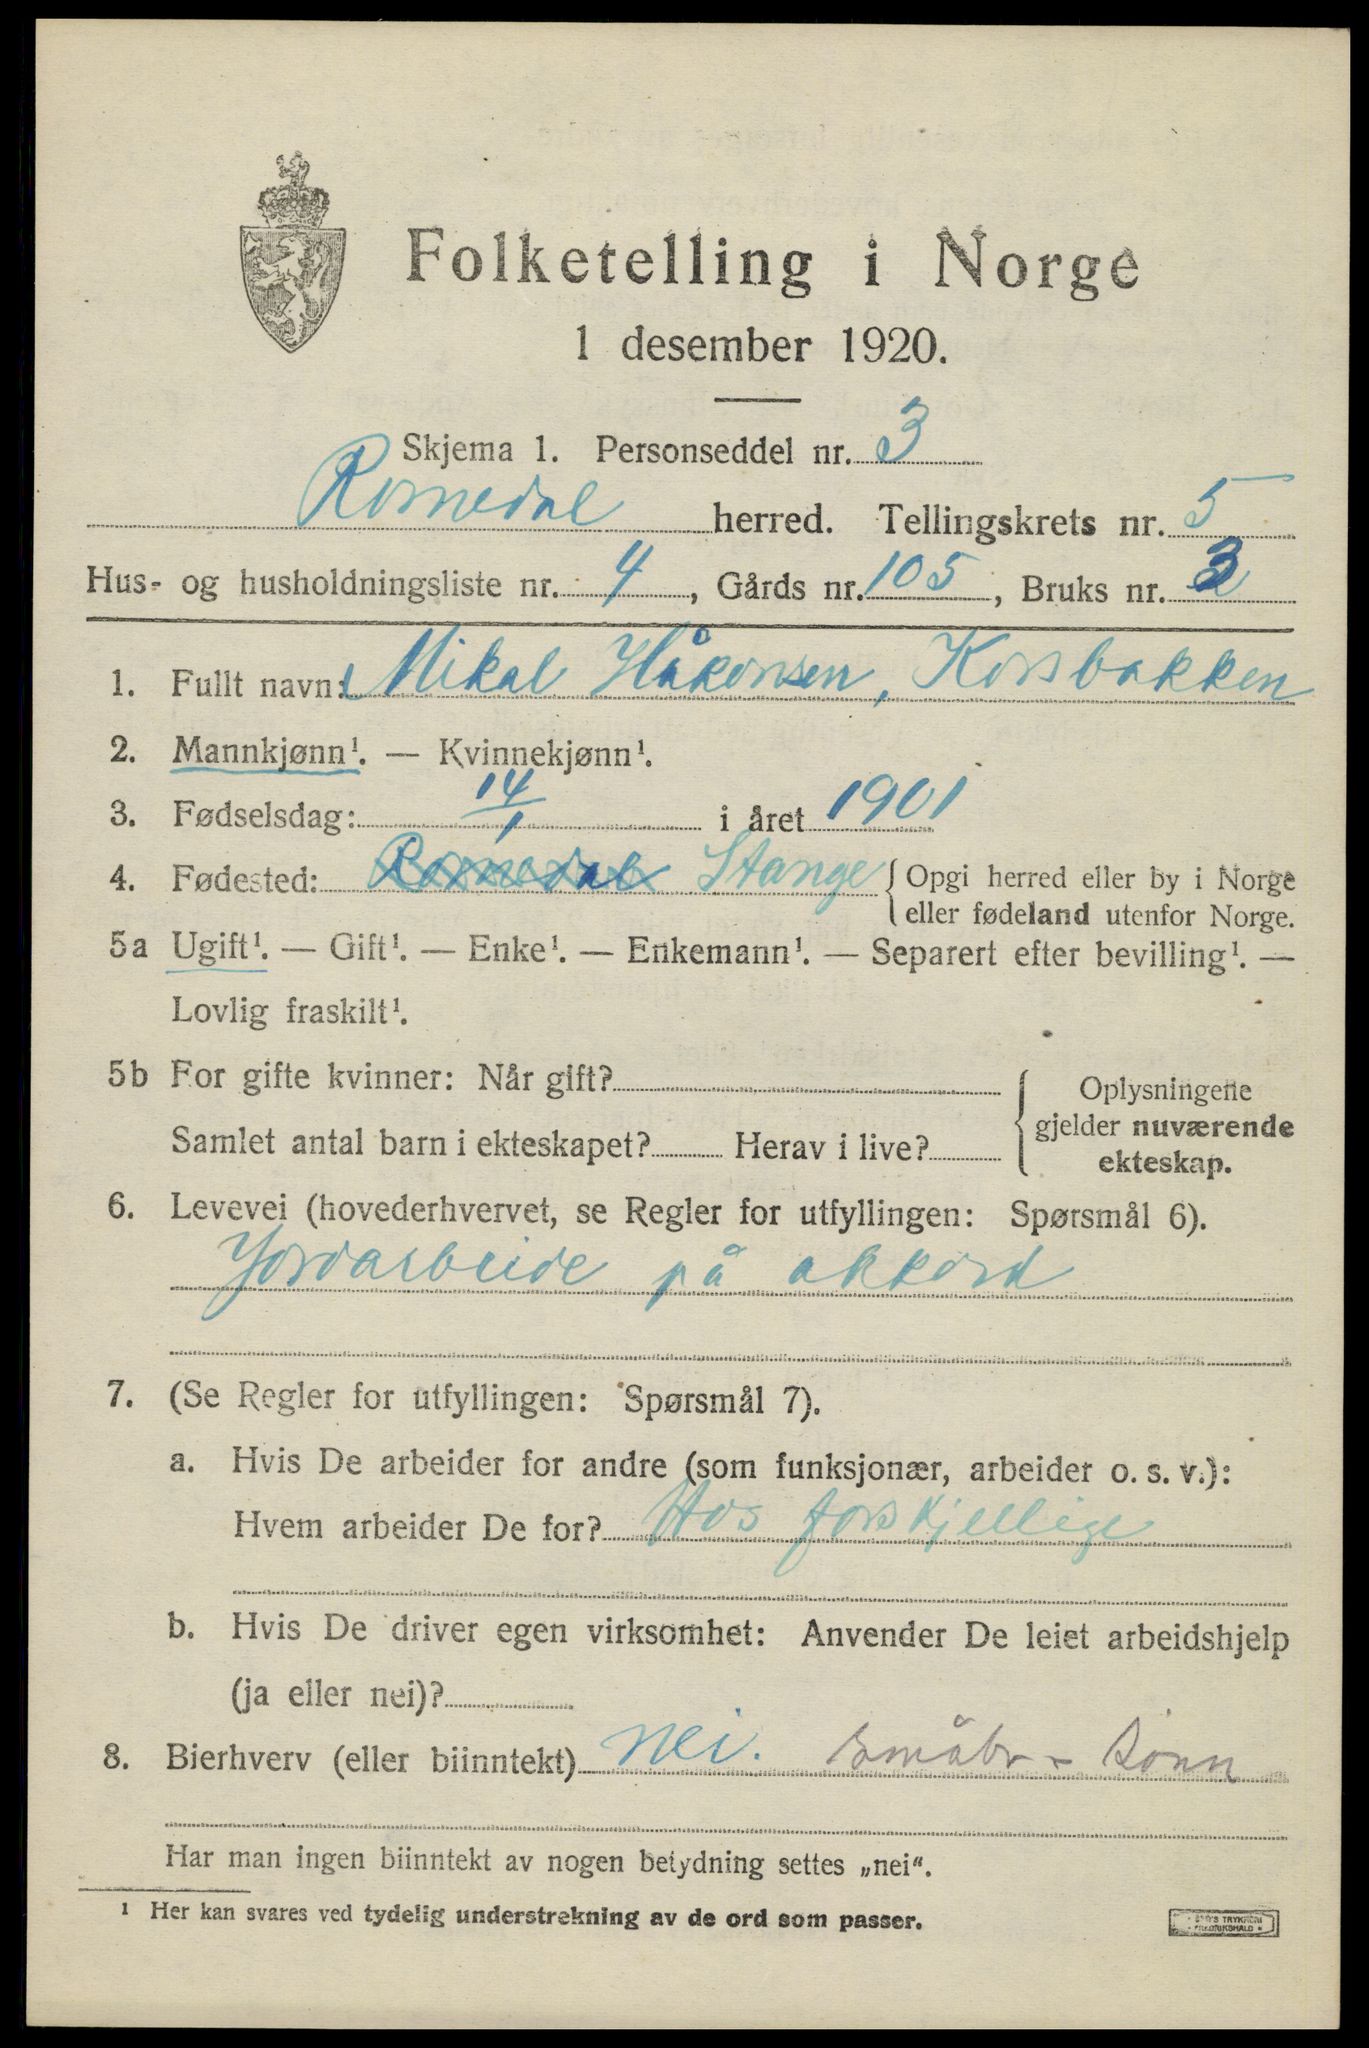 Folketelling i Norge
1 desember 1920.
Skjema 1. Personseddel nr. 3
Romedal herred. Tellingskrets nr. 5
Hus- og husholdningsliste nr. 4, Gårds nr. 105, Bruks nr. 3
1. Fullt navn: Mikal Håkonsen, Korsbakken
2. Mannkjønn¹. — Kvinnekjønn¹.
3. Fødselsdag: 14/1 i året 1901
4. Fødested: Romedal Stange { Opgi herred eller by i Norge
eller fødeland utenfor Norge.
5a Ugift¹. — Gift¹. — Enke¹. — Enkemann¹. — Separert efter bevilling¹. —
Lovlig fraskilt¹.
5b For gifte kvinner: Når gift? { Oplysningene
gjelder nuværende
Samlet antal barn i ekteskapet? Herav i live?
ekteskap.
6. Levevei (hovederhvervet, se Regler for utfyllingen: Spørsmål 6).
Jordarbeide på akkord
7. (Se Regler for utfyllingen: Spørsmål 7).
a. Hvis De arbeider for andre (som funksjonær, arbeider o. s. v.):
Hvem arbeider De for? Hos forskjellige
b. Hvis De driver egen virksomhet: Anvender De leiet arbeidshjelp
(ja eller nei)?
8. Bierhverv (eller biinntekt) nei. Småbr - Sønn
Har man ingen biinntekt av nogen betydning settes „nei“.
¹ Her kan svares ved tydelig understrekning av de ord som passer.
TRYKKERI
FREDRIKSHALD